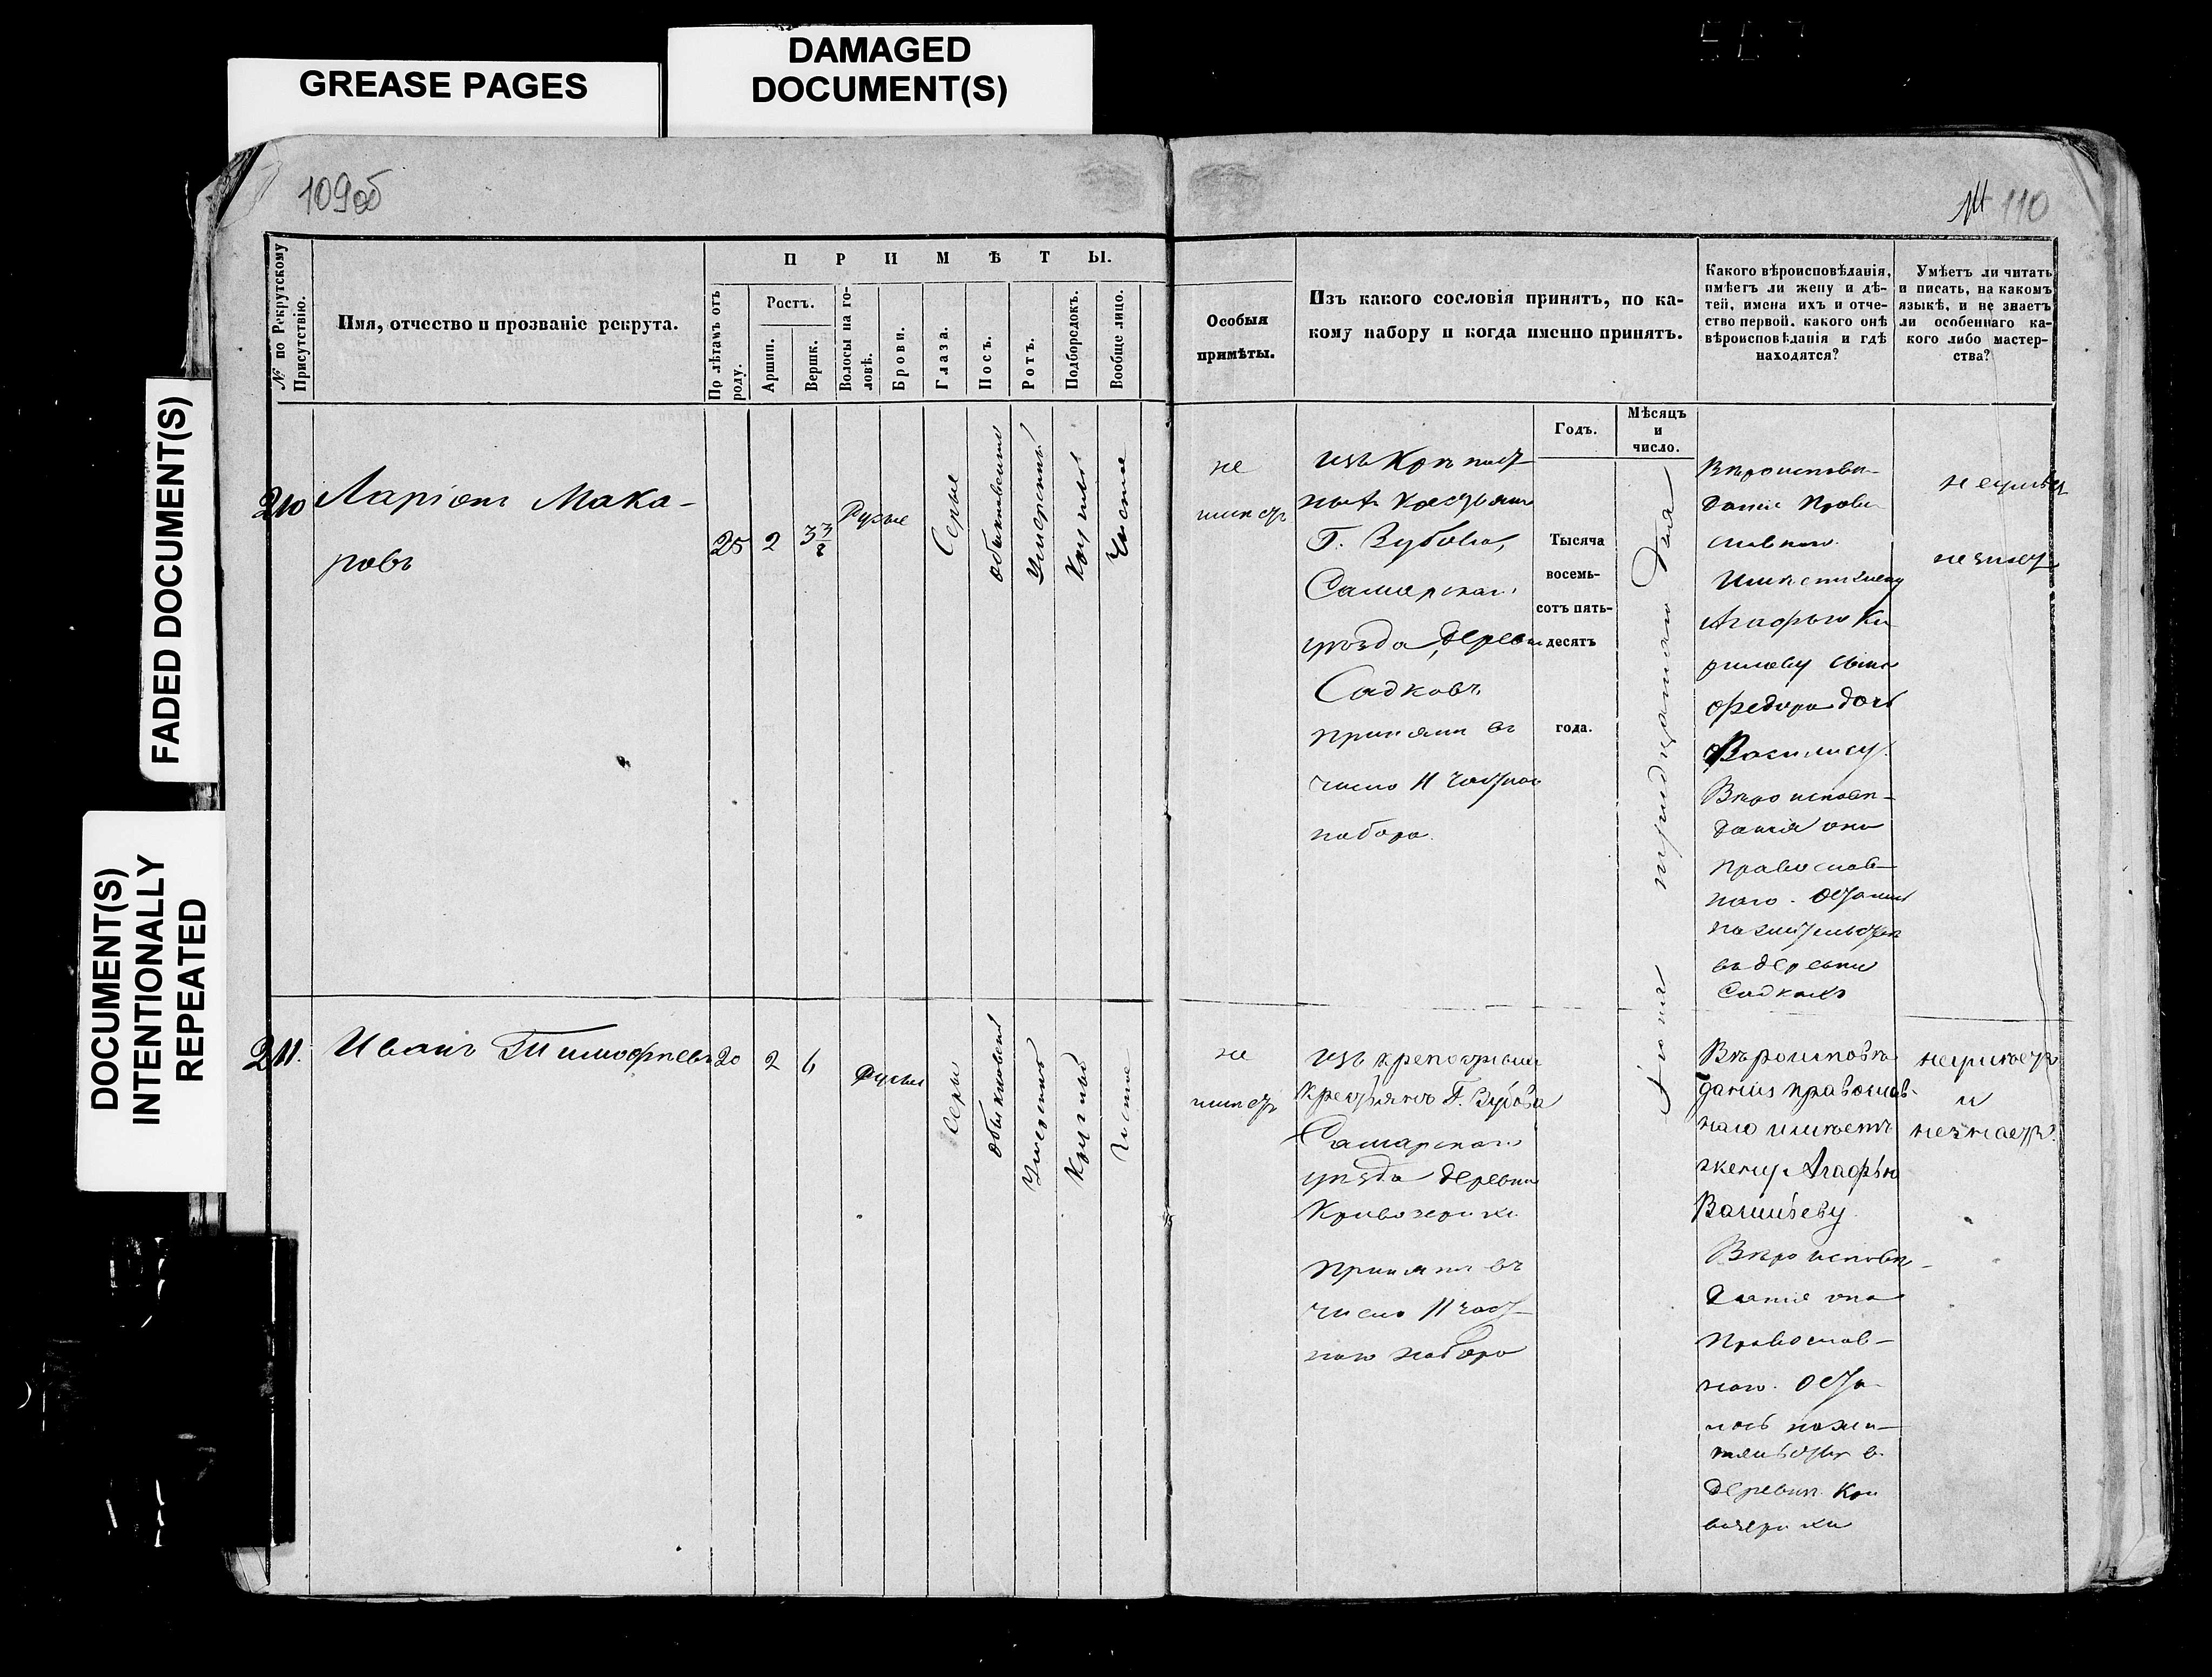 GREASE PAGES
DAMAGED
DOCUMENT(S)
FADED DOCUMENT(S)
DOCUMENT(S)
INTENTIONALLY
REPEATED
109об
110
№ по Рекрутскому
Присутствію.
Имя, отчество и прозваніе рекрута.
ПРИМѢТЫ.
По лѣтамъ отъ
роду.
Ростъ.
Аршин.
Вершк.
Волосы на го-
ловѣ.
Брови.
Глаза.
Носъ.
Ротъ.
Подбородокъ.
Вообще лицо.
Особыя
примѣты.
Изъ какого сословія принятъ, по ка-
кому набору и когда именно принятъ.
Какого вѣроисповѣданія,
имѣетъ ли жену и дѣ-
тей, имена ихъ и отче-
ство первой, какого онѣ
вѣроисповѣданія и гдѣ
находятся?
Умѣетъ ли читать
и писать, на какомъ
языкѣ, и не знаетъ
ли особеннаго ка-
кого либо мастер-
ства?
Годъ.
Мѣсяцъ
и
число.
Тысяча
восемь-
сотъ пять-
десятъ
года.
Іюня тридцатаго дня
210
Ларіонъ Мака-
ровъ
25
2
3 3/8
Русые
Серые
обыкновенный
Умеренный
Круглый
Чистое
не
имеетъ
изъ Крѣпост
ныхъ Крестьянъ
Г. Зубова,
Самарскаго
уѣзда, деревни
Садковъ
принятъ въ
число 11 частнаго
набора.
Вѣроисповѣ-
данія Право
славнаго.
Имѣетъ жену
Агафью Ки
рилову сына
Федора дочь
Василису.
Вѣроисповѣ-
данія они
православ-
наго. Остались
на жительствѣ
въ деревни
Садкахъ
неумѣетъ
незнаетъ
211.
Иванъ Тимофѣевъ
20
2
6
Русые
Серые
обыкновенный
Умеренный
Круглый
Чистое
не
имѣетъ
изъ крепостныхъ
Крестьянъ Г. Зубова
Самарскаго
уѣзда деревни
Принятъ въ
число 11 част
наго набора
Вѣроисповѣ
данія православ-
наго имѣетъ
жену Агафью
Васильеву.
Вѣроисповѣ-
данія она
Православ-
наго. Оста-
лась на жи-
тельствѣ в
деревни
неумѣетъ
и
незнаетъ.